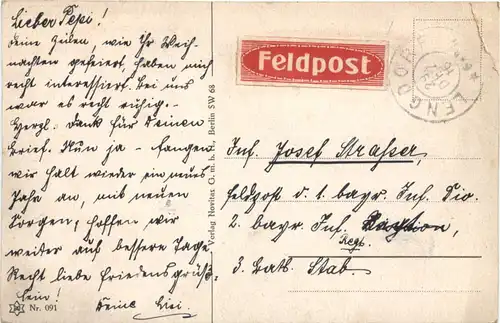 Lieber Pepi!
Deine Zeilen, wie Ihr Weih-
nachten gefeiert, haben mich
recht interessiert. Bei uns
war es recht ruhig. -
Herzl. Dank für Deinen
Brief. Nun ja - fangen
wir halt wieder ein neues
Jahr an, mit neuen
Sorgen, hoffen wir
weiter auf bessere Tage
Recht liebe Friedensgrüß-
lein!
Deine
Nr. 091
Verlag Novitas G. m. b. H., Berlin SW 68
Feldpost
LENGDORF
Inf. Josef Strasser,
Feldpost d. 1 bayr. Inf. Div.
2. bayr. Inf.
Regt.
3. Batl. Stab